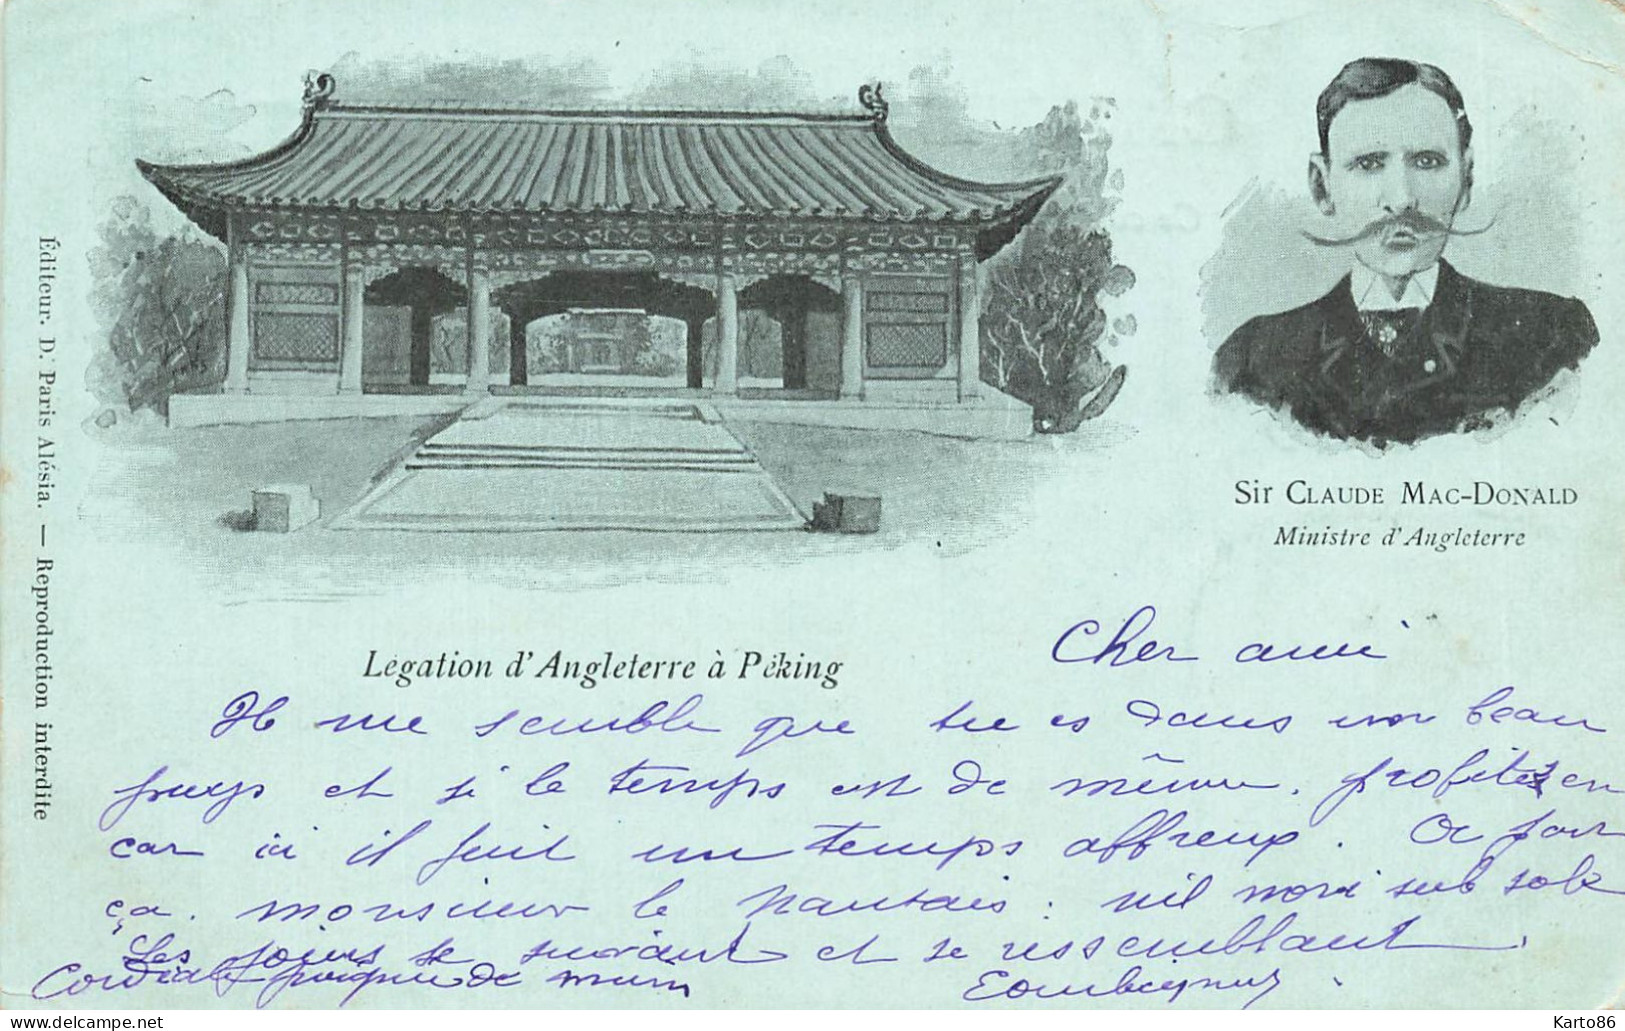 Éditeur. D. Paris Alésia. — Reproduction interdite
Sir CLAUDE MAC-DONALD
Ministre d'Angleterre
Légation d'Angleterre à Péking
Cher ami
Il me semble que tu es dans un beau
pays et si le temps est de même. profites en
car ici il fait un temps affreux.
ça. monsieur le Nantais : nil novi sub sole
"Les jours se suivant et se ressemblant.
Cordiale poignée de main
Karto86